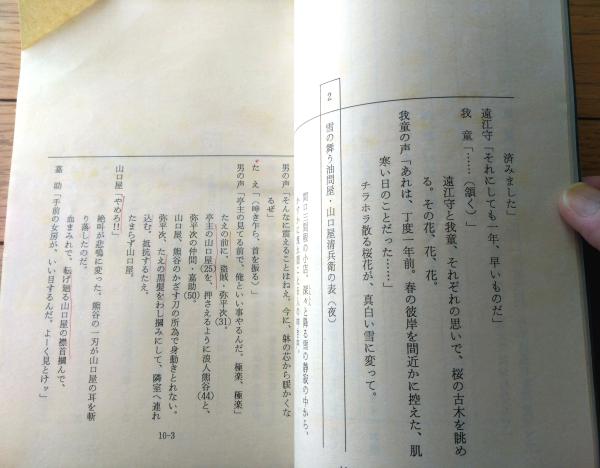 済みました」
遠江守「それにしても一年、早いものだ」
我　童「……（頷く）」
遠江守と我童、それぞれの思いで、桜の古木を眺め
る。その花、花、花。
我童の声「あれは、丁度一年前。春の彼岸を間近かに控えた、肌
寒い日のことだった……」
チラホラ散る桜花が、真白い雪に変って。
2　雪の舞う油問屋・山口屋清兵衛の表（夜）
間口三間程の小店。深々と降る雪の静寂の中から、
男の声「そんなに震えることはねえ。今に、躰の芯から暖かくな
るぜ」
た　え「（呻き乍ら、首を振る）」
男の声「亭主の見てる前で、俺といい事やるんだ。極楽、極楽」
たえの前に、盗賊・弥平次（31）。
亭主の山口屋（25）を、押さえるように浪人熊谷（44）と、
弥平次の仲間・嘉助（50）。
山口屋、熊谷のかざす刀の所為で身動きとれない。
弥平次、たえの黒髪をわし掴みにして、隣室へ連れ
込む。抵抗するたえ。
たまらず山口屋。
山口屋「やめろ!!」
絶叫が悲鳴に変った。熊谷の一刃が山口屋の耳を斬
り落したのだ。
血まみれで、転げ廻る山口屋の襟首掴んで、
嘉　助「手前の女房が、いい目するんだ。よーく見とけッ」
10-3